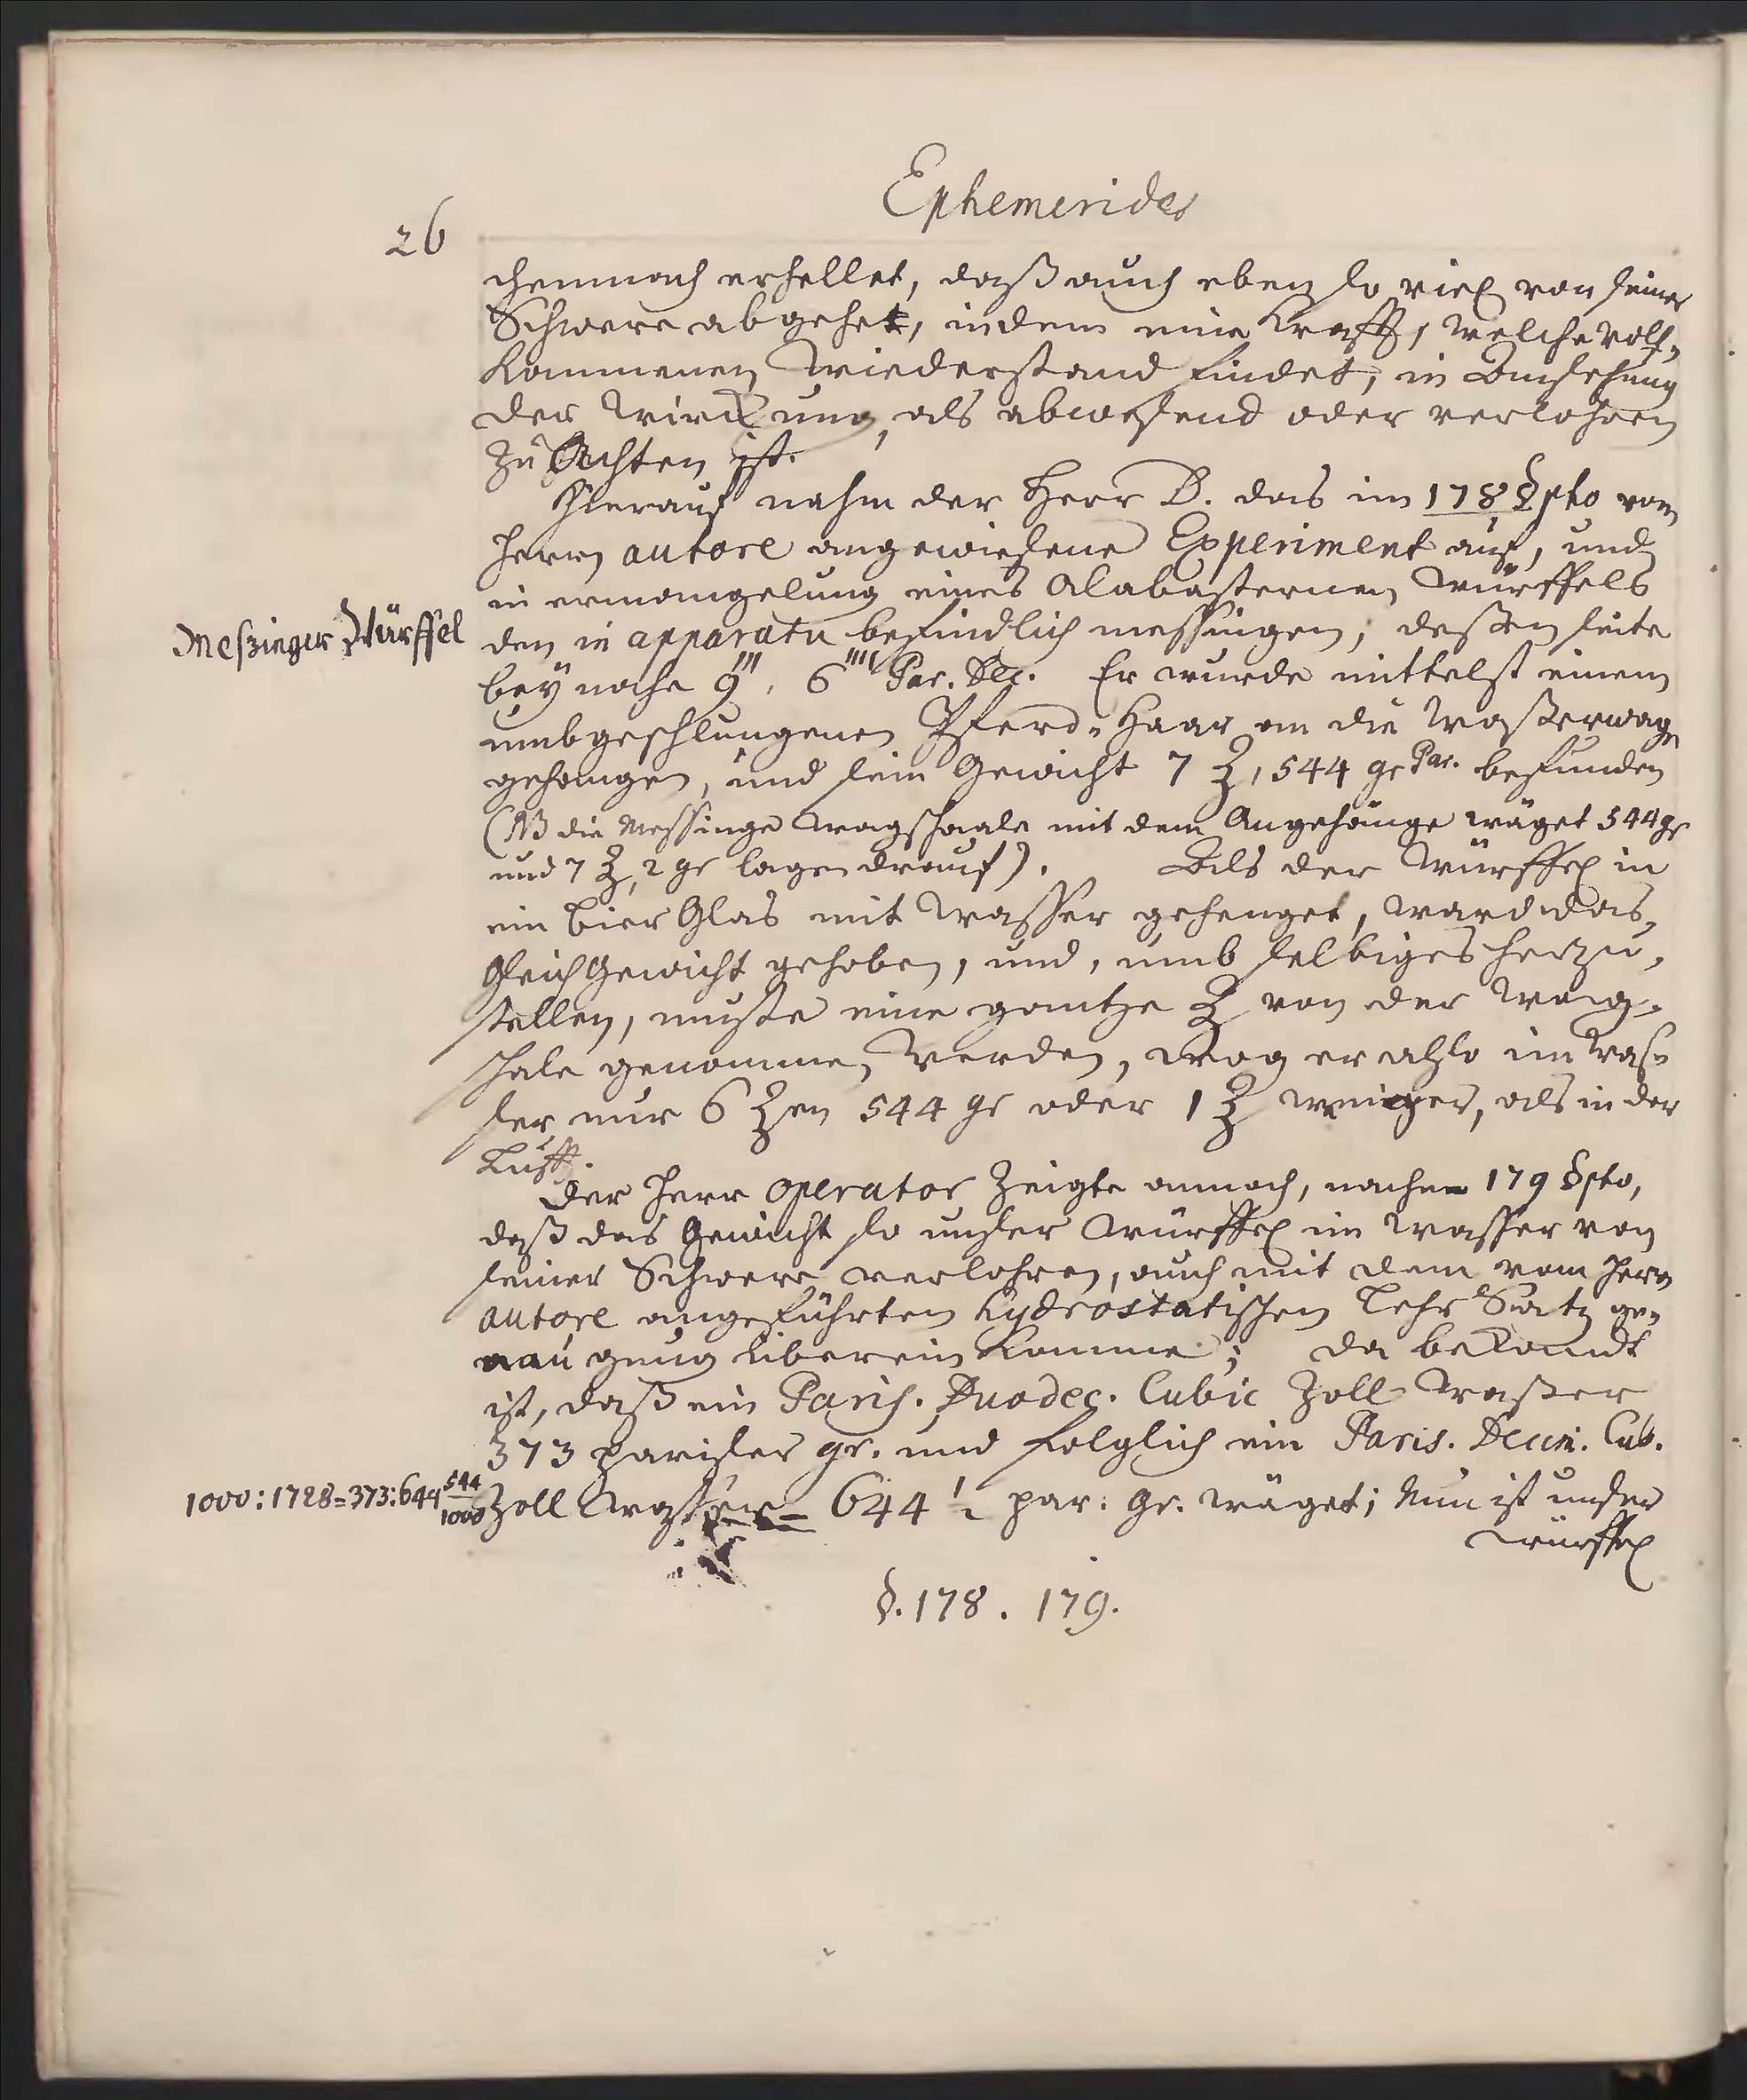 Ephemerides
26
demnach erhellet, daß auch eben so viel von seiner
Schwere abgehet, indem eine Krafft, welche voll-
kommenen Wiederstand findet, in Ansehung
der Wirckung, als abwesend oder verlohren
zu Achten ist.
Hierauf nahm der Herr B. das im 178 §pho vom
Herrn autore angewiesene Experiment auf, und
in ermangelung eines Alabasternen Würffels
Meßinger Würffel
den in apparatu befindlich messingen, deßen seite
bey nahe 9''', 6'''' Par. Dec. Er wurde mittelst einem
umbgeschlungenen Pferd-Haar an die Waßerwage
gehangen, und sein Gewicht 7 ℥, 544 gr Par. befunden
(NB die Messinge Wagschaale mit dem Angehänge wäget 544 gr
und 7 ℥, 2 gr lagen drauf). Als der Würffel in
ein Bier Glas mit Wasser gehenget, ward das
Gleich Gewicht gehoben, und, umb selbiges herzu-
stellen, muste eine gantze ℥ von der Wag-
schale genommen werden, wog er also im Was-
ser nur 6 ℥en 544 gr oder 1 ℥ weniger, als in der
Lufft.
Der Herr Operator zeigte annach, nachm 179 §pho,
daß das Gewicht so unser Würffel im Wasser von
seiner Schwere verlohren, auch mit dem vom Herrn
autore angeführten hydrostatischen Lehr Satz ge-
nau gnug überein komme; da bekandt
ist, daß ein Paris. Duodec. Cubic Zoll Waßer
373 pariser gr. und folglich ein Paris. Decim. Cub.
1000:1728=373:644 544/1000
Zoll Wasser 644 1/2 par. Gr. wäget; Nun ist unser
Würffel
§. 178. 179.